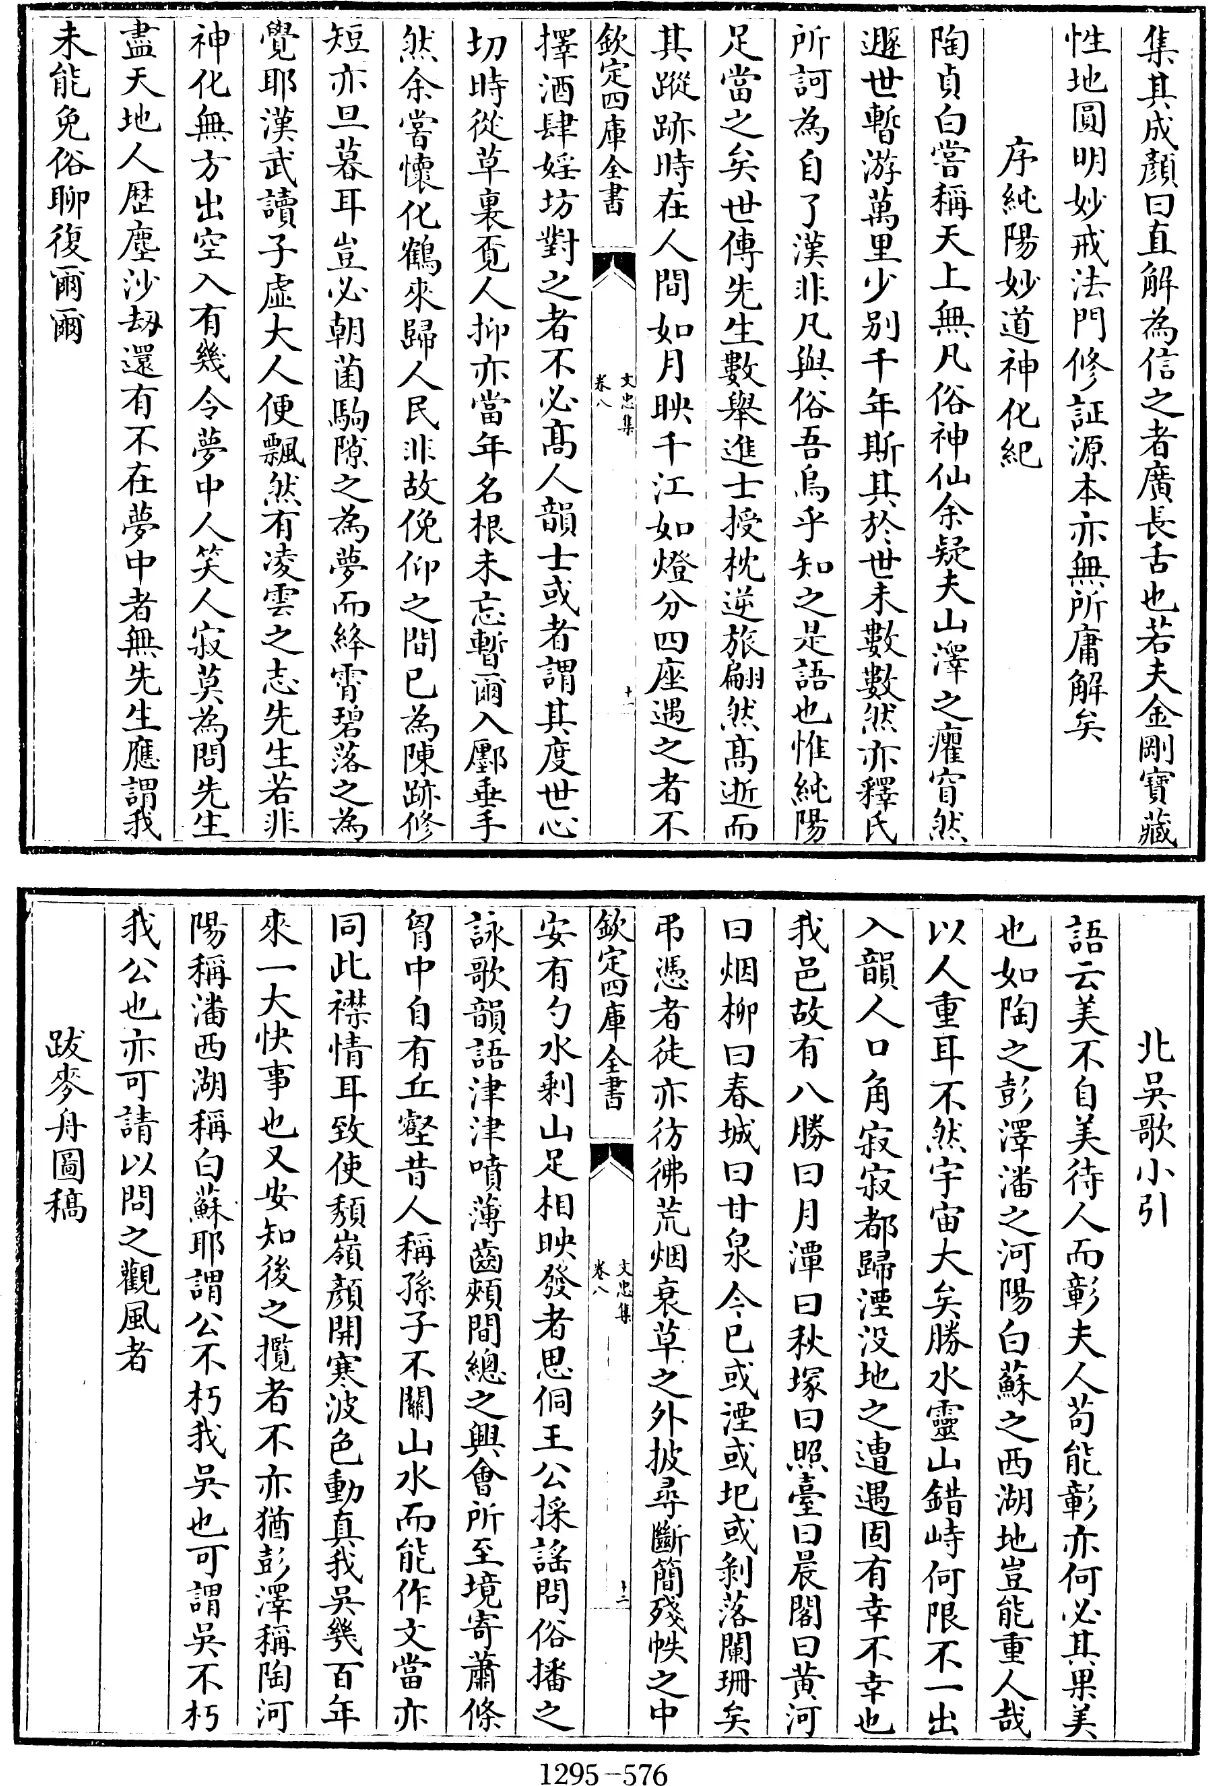 集其成顏曰直解為信之者廣長舌也若夫金剛寶藏
性地圓明妙戒法門修証源本亦無所庸解矣
序純陽妙道神化紀
陶貞白嘗稱天上無凡俗神仙余疑夫山澤之癯窅然
遯世暫游萬里少別千年斯其於世未數數然亦釋氏
所訶為自了漢非凡與俗吾烏乎知之是語也惟純陽
足當之矣世傳先生數舉進士授枕逆旅翩然髙逝而
其蹤跡時在人間如月映千江如燈分四座遇之者不
欽定四庫全書
文忠集
卷八
十一
擇酒肆婬坊對之者不必髙人韻士或者謂其度世心
切時從草裏覓人抑亦當年名根未忘暫爾入鄽垂手
然余嘗懷化鶴來歸人民非故俛仰之間已為陳跡修
短亦旦暮耳豈必朝菌駒隙之為夢而絳霄碧落之為
覺耶漢武讀子虛大人便飄然有凌雲之志先生若非
神化無方出空入有幾令夢中人笑人寂莫為問先生
盡天地人歷塵沙刼還有不在夢中者無先生應謂我
未能免俗聊復爾爾
北吳歌小引
語云美不自美待人而彰夫人苟能彰亦何必其果美
也如陶之彭澤潘之河陽白蘇之西湖地豈能重人哉
以人重耳不然宇宙大矣勝水靈山錯峙何限不一出
入韻人口角寂寂都歸湮没地之遭遇固有幸不幸也
我邑故有八勝曰月潭曰秋塚曰照臺曰晨閣曰黄河
曰烟柳曰春城曰甘泉今已或湮或圯或剝落闌珊矣
弔憑者徒亦彷彿荒烟衰草之外披尋斷簡殘帙之中
欽定四庫全書
文忠集
卷八
十二
安有勺水剩山足相映發者思侗王公採謠問俗播之
詠歌韻語津津噴薄齒頰間總之興會所至境寄蕭條
胷中自有丘壑昔人稱孫子不關山水而能作文當亦
同此襟情耳致使頽嶺顏開寒波色動真我吳幾百年
來一大快事也又安知後之攬者不亦猶彭澤稱陶河
陽稱潘西湖稱白蘇耶謂公不朽我吳也可謂吳不朽
我公也亦可請以問之觀風者
跋麥舟圖稿
1295-576